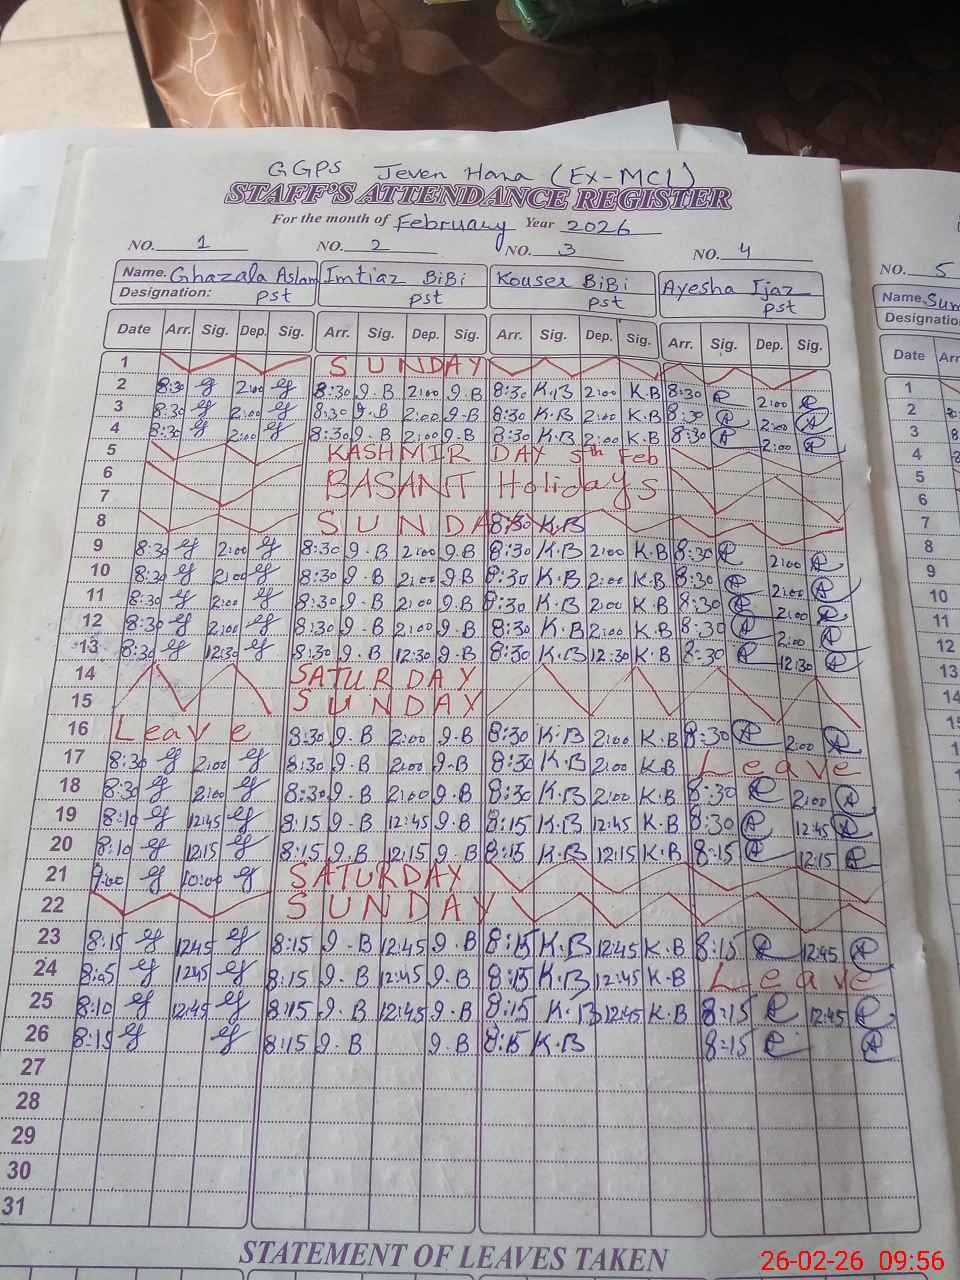 GGPS Jeven Hana (Ex-MCl)
STAFF'S ATTENDANCE REGISTER
For the month of February Year 2026
NO. 1 NO. 2 NO. 3 NO. 4 NO. 5
Name. Ghazala Aslam Imtiaz BiBi Kouser BiBi Ayesha Ijaz Name.
Designation: Pst pst Pst Pst Designation
Date Arr. Sig. Dep. Sig. Arr. Sig. Dep. Sig. Arr. Sig. Dep. Sig. Arr. Sig. Dep. Sig. Date Arr
1 SUNDAY 1
2 8:30 2:00 8:30 I.B 2:00 I.B 8:30 K.B 2:00 K.B 8:30 2:00 2
3 8:30 2:00 8:30 I.B 2:00 I.B 8:30 K.B 2:00 K.B 8:30 2:00 3
4 8:30 2:00 8:30 I.B 2:00 I.B 8:30 K.B 2:00 K.B 8:30 2:00 4
5 KASHMIR DAY 5th Feb 5
6 BASANT Holidays 6
7 7
8 SUNDAY 8:30 K.B 8
9 8:30 2:00 8:30 I.B 2:00 I.B 8:30 K.B 2:00 K.B 8:30 2:00 9
10 8:30 2:00 8:30 I.B 2:00 I.B 8:30 K.B 2:00 K.B 8:30 2:00 10
11 8:30 2:00 8:30 I.B 2:00 I.B 8:30 K.B 2:00 K.B 8:30 2:00 11
12 8:30 2:00 8:30 I.B 2:00 I.B 8:30 K.B 2:00 K.B 8:30 2:00 12
13 8:30 12:30 8:30 I.B 12:30 I.B 8:30 K.B 12:30 K.B 8:30 12:30 13
14 SATURDAY 14
15 SUNDAY
16 Leave 8:30 I.B 2:00 I.B 8:30 K.B 2:00 K.B 8:30 2:00
17 8:30 2:00 8:30 I.B 2:00 I.B 8:30 K.B 2:00 K.B Leave
18 8:30 2:00 8:30 I.B 2:00 I.B 8:30 K.B 2:00 K.B 8:30 2:00
19 8:10 12:45 8:15 I.B 12:45 I.B 8:15 K.B 12:45 K.B 8:30 12:45
20 8:10 12:15 8:15 I.B 12:15 I.B 8:15 K.B 12:15 K.B 8:15 12:15
21 9:00 10:00 SATURDAY
22 SUNDAY
23 8:15 12:45 8:15 I.B 12:45 I.B 8:15 K.B 12:45 K.B 8:15 12:45
24 8:05 12:45 8:15 I.B 12:45 I.B 8:15 K.B 12:45 K.B Leave
25 8:10 12:45 8:15 I.B 12:45 I.B 8:15 K.B 12:45 K.B 8:15 12:45
26 8:15 8:15 I.B I.B 8:15 K.B 8:15
27
28
29
30
31
STATEMENT OF LEAVES TAKEN
26-02-26 09:56